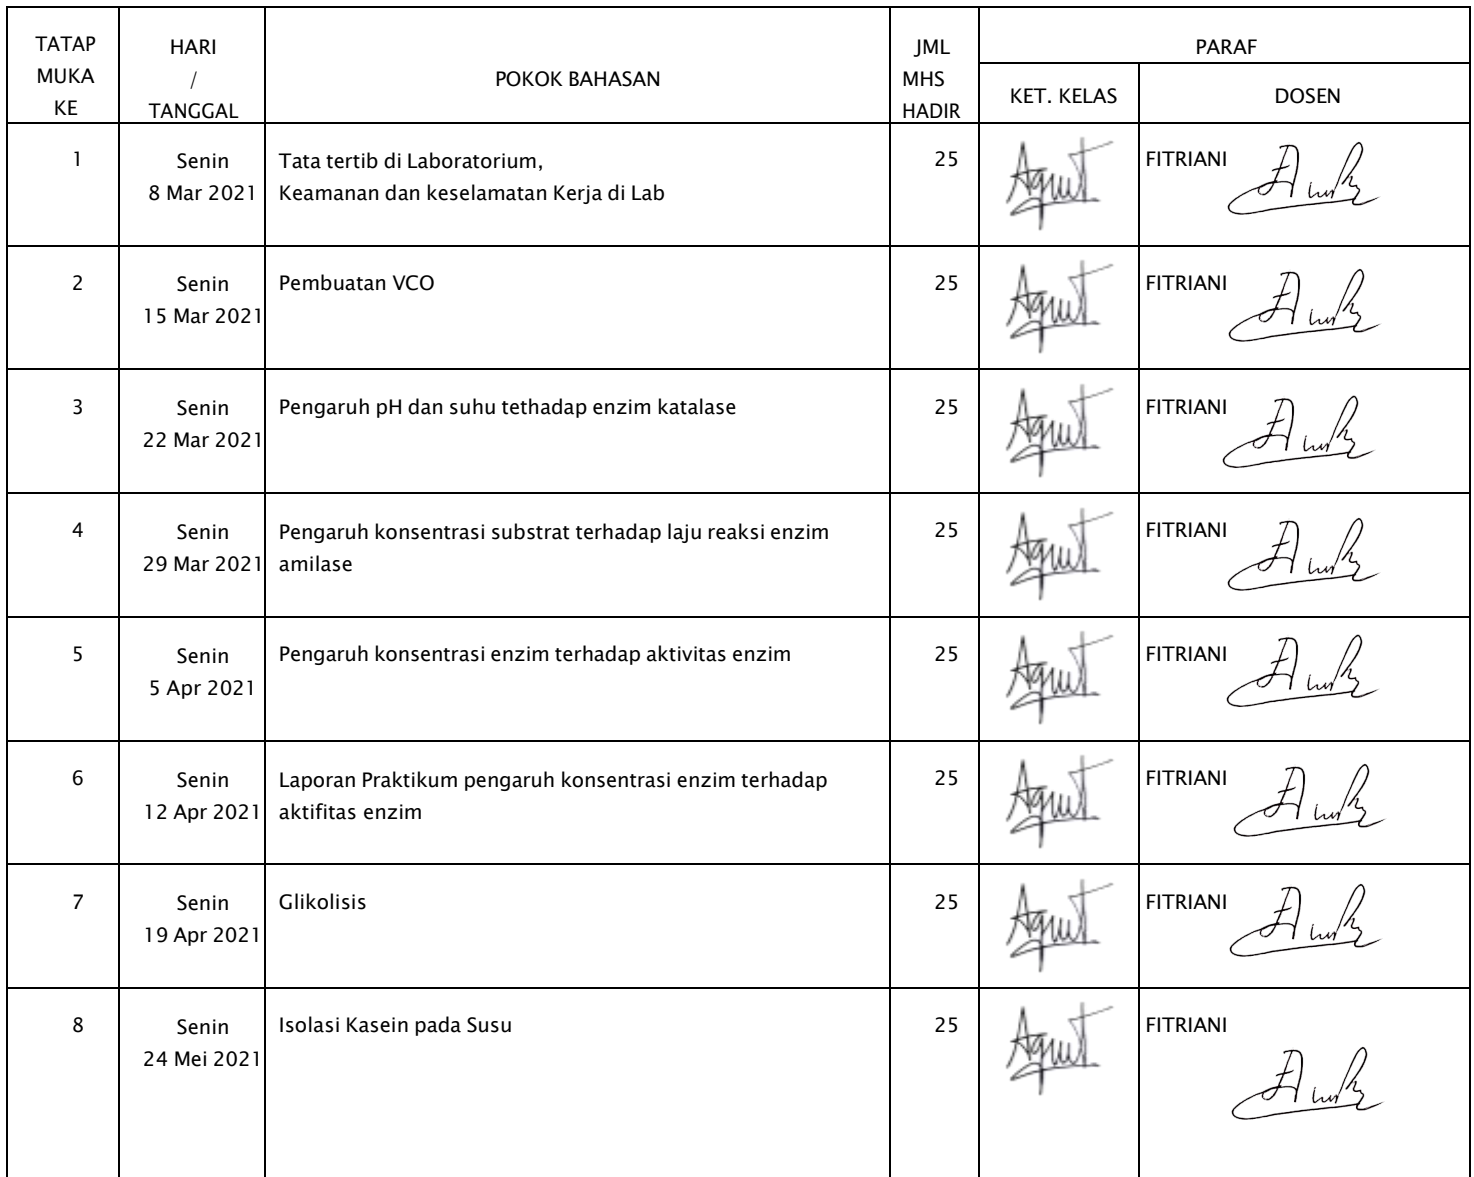 TATAP
MUKA
KE
HARI
/
TANGGAL
POKOK BAHASAN
JML
MHS
HADIR
PARAF
KET. KELAS
DOSEN
1
Senin
8 Mar 2021
Tata tertib di Laboratorium,
Keamanan dan keselamatan Kerja di Lab
25
FITRIANI
2
Senin
15 Mar 2021
Pembuatan VCO
25
FITRIANI
3
Senin
22 Mar 2021
Pengaruh pH dan suhu tethadap enzim katalase
25
FITRIANI
4
Senin
29 Mar 2021
Pengaruh konsentrasi substrat terhadap laju reaksi enzim
amilase
25
FITRIANI
5
Senin
5 Apr 2021
Pengaruh konsentrasi enzim terhadap aktivitas enzim
25
FITRIANI
6
Senin
12 Apr 2021
Laporan Praktikum pengaruh konsentrasi enzim terhadap
aktifitas enzim
25
FITRIANI
7
Senin
19 Apr 2021
Glikolisis
25
FITRIANI
8
Senin
24 Mei 2021
Isolasi Kasein pada Susu
25
FITRIANI